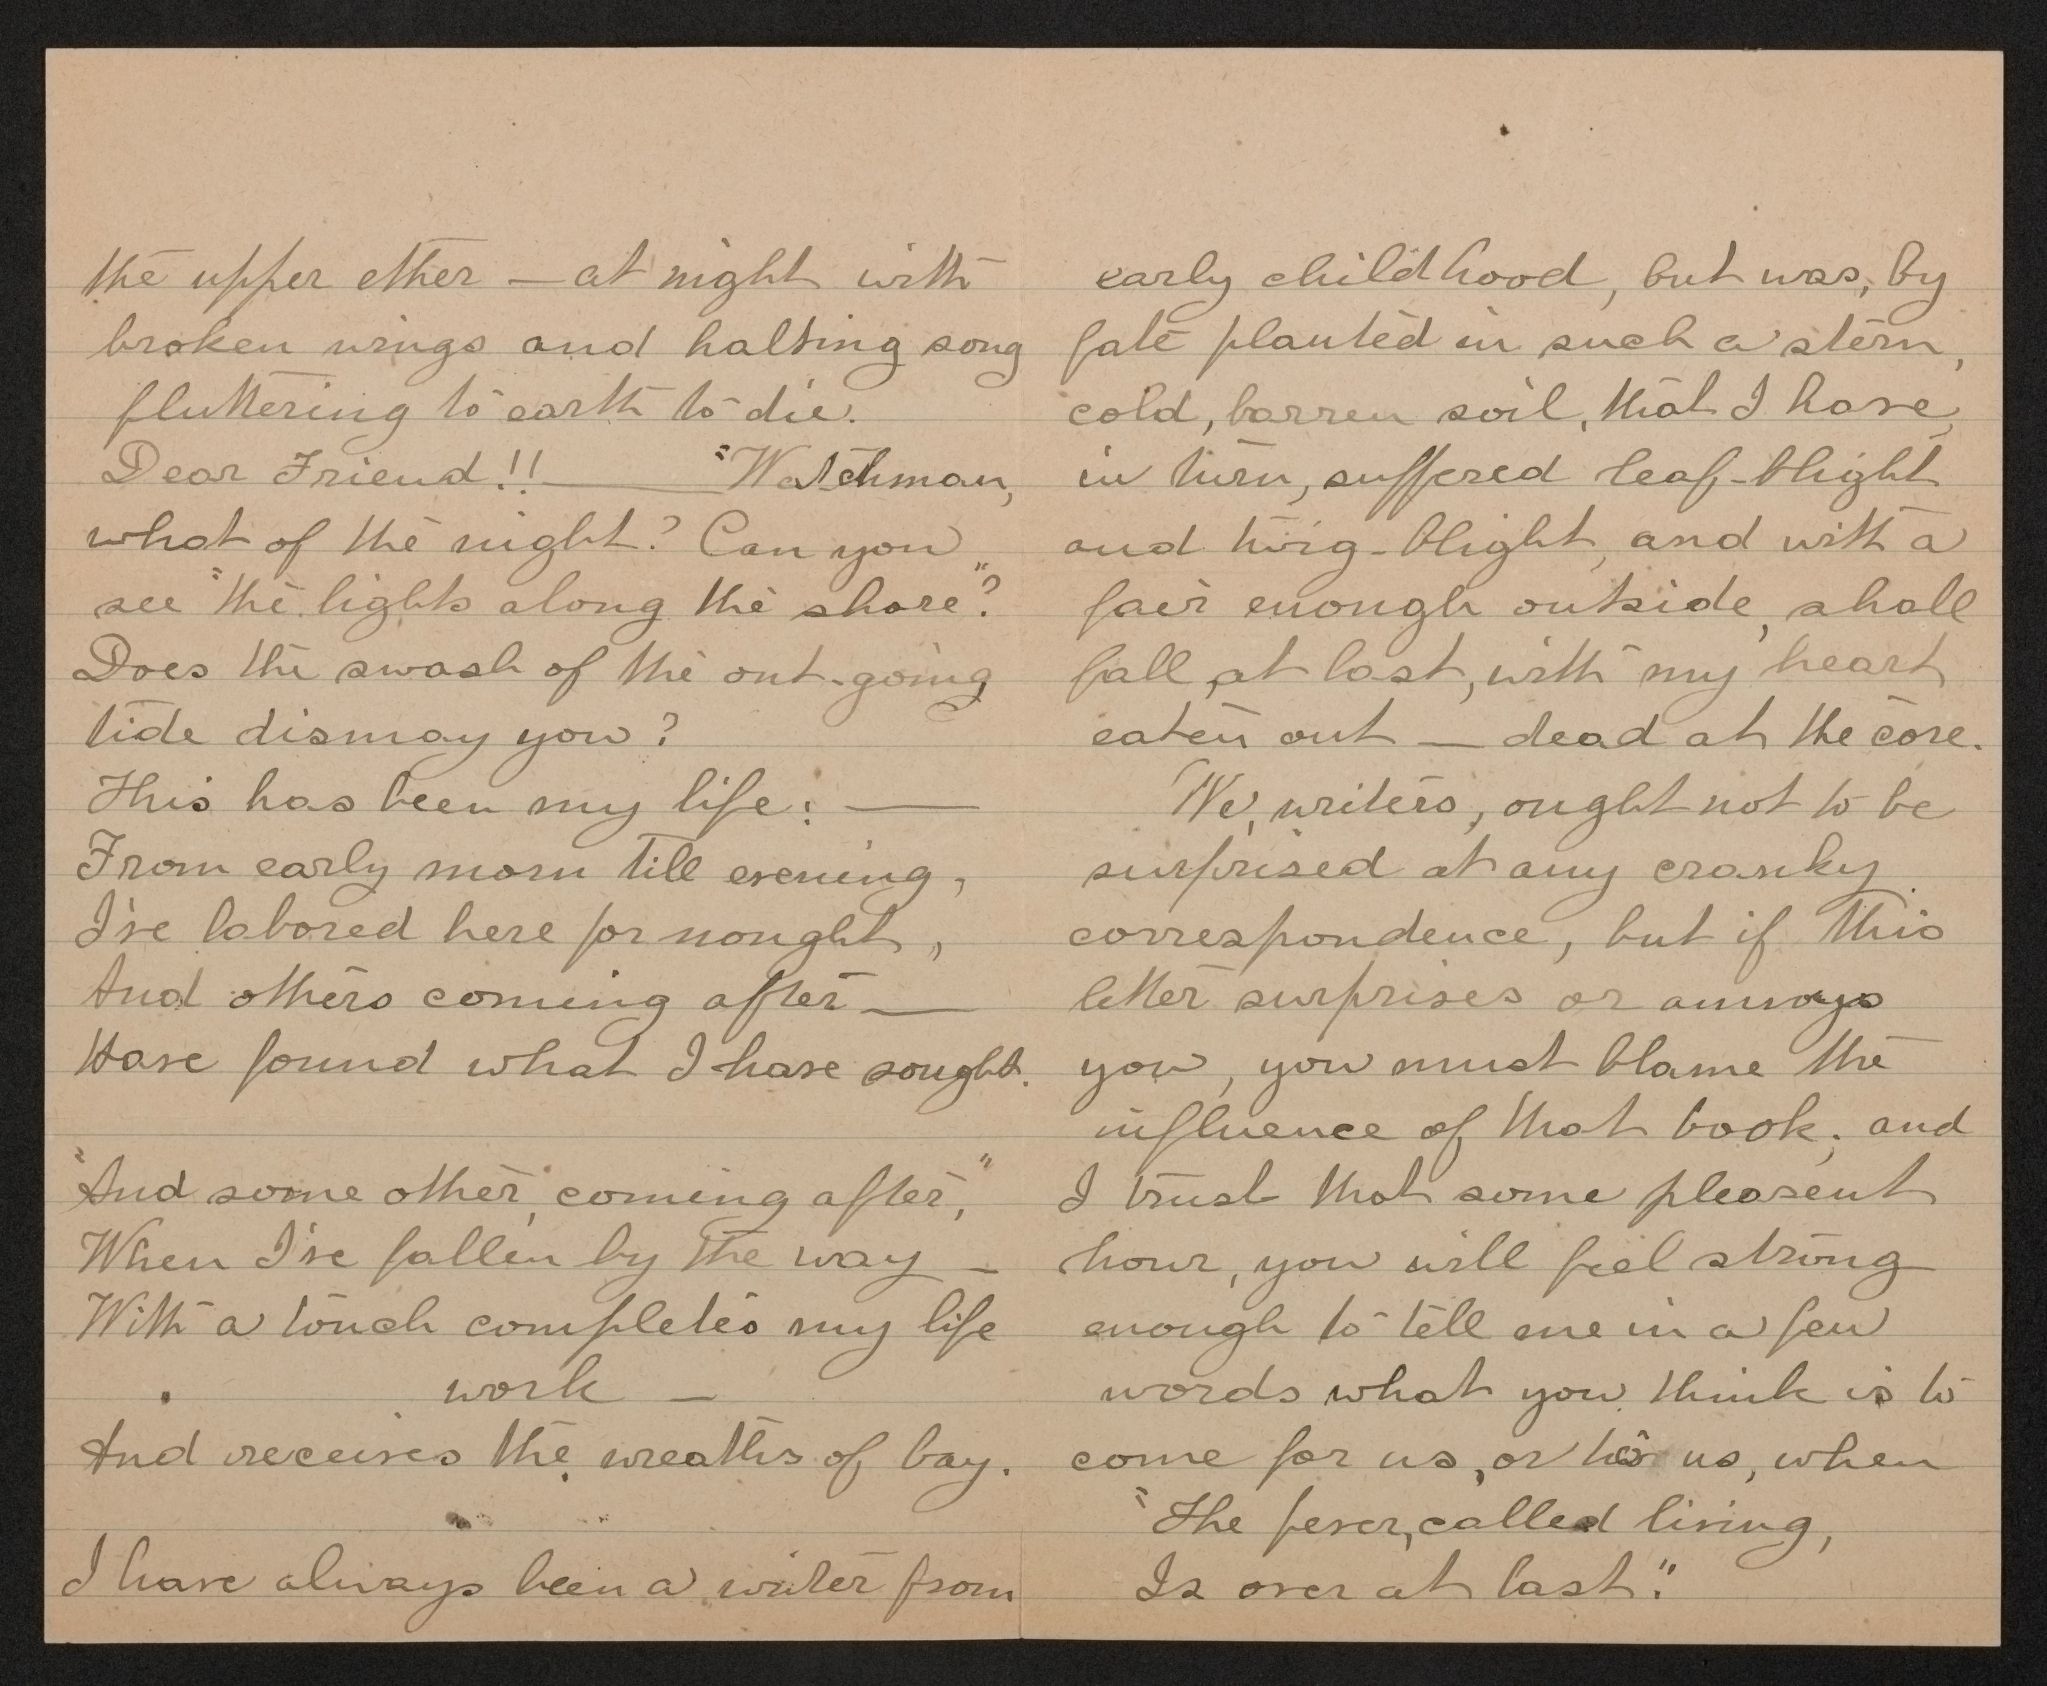 the upper ether — at night with
broken wings and halting song
fluttering to earth to die.
Dear Friend!! —— "Watchman,
what of the night? Can you
see "the lights along the shore"?
Does the swash of the out-going
tide dismay you?
This has been my life: —
From early morn till evening,
I've labored here for nought,
And others coming after —
Have found what I have sought.
"And some other, coming after,"
When I've fallen by the way —
With a touch completes my life
work —
And receives the wreaths of bay.
I have always been a writer from
early childhood, but was, by
fate planted in such a stern,
cold, barren soil, that I have,
in turn, suffered leaf-blight
and twig-blight, and with a
fair enough outside, shall
fall, at last, with my heart
eaten out — dead at the core.
We, writers, ought not to be
surprised at any cranky
correspondence, but if this
letter surprises or annoys
you, you must blame the
influence of that book; and
I trust that some pleasent
hour, you will feel strong
enough to tell me in a few
words what you think is to
come for us, or to us, when
"The fever, called living,
Is over at last."